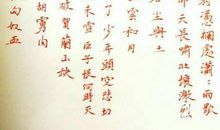 憑欄處瀟瀟雨歇
仰天長嘯壯懷激烈
名塵與土
雲和月
了少年頭空悲切
未雪臣子恨何時
賀蘭山缺
胡虜肉
匈奴血